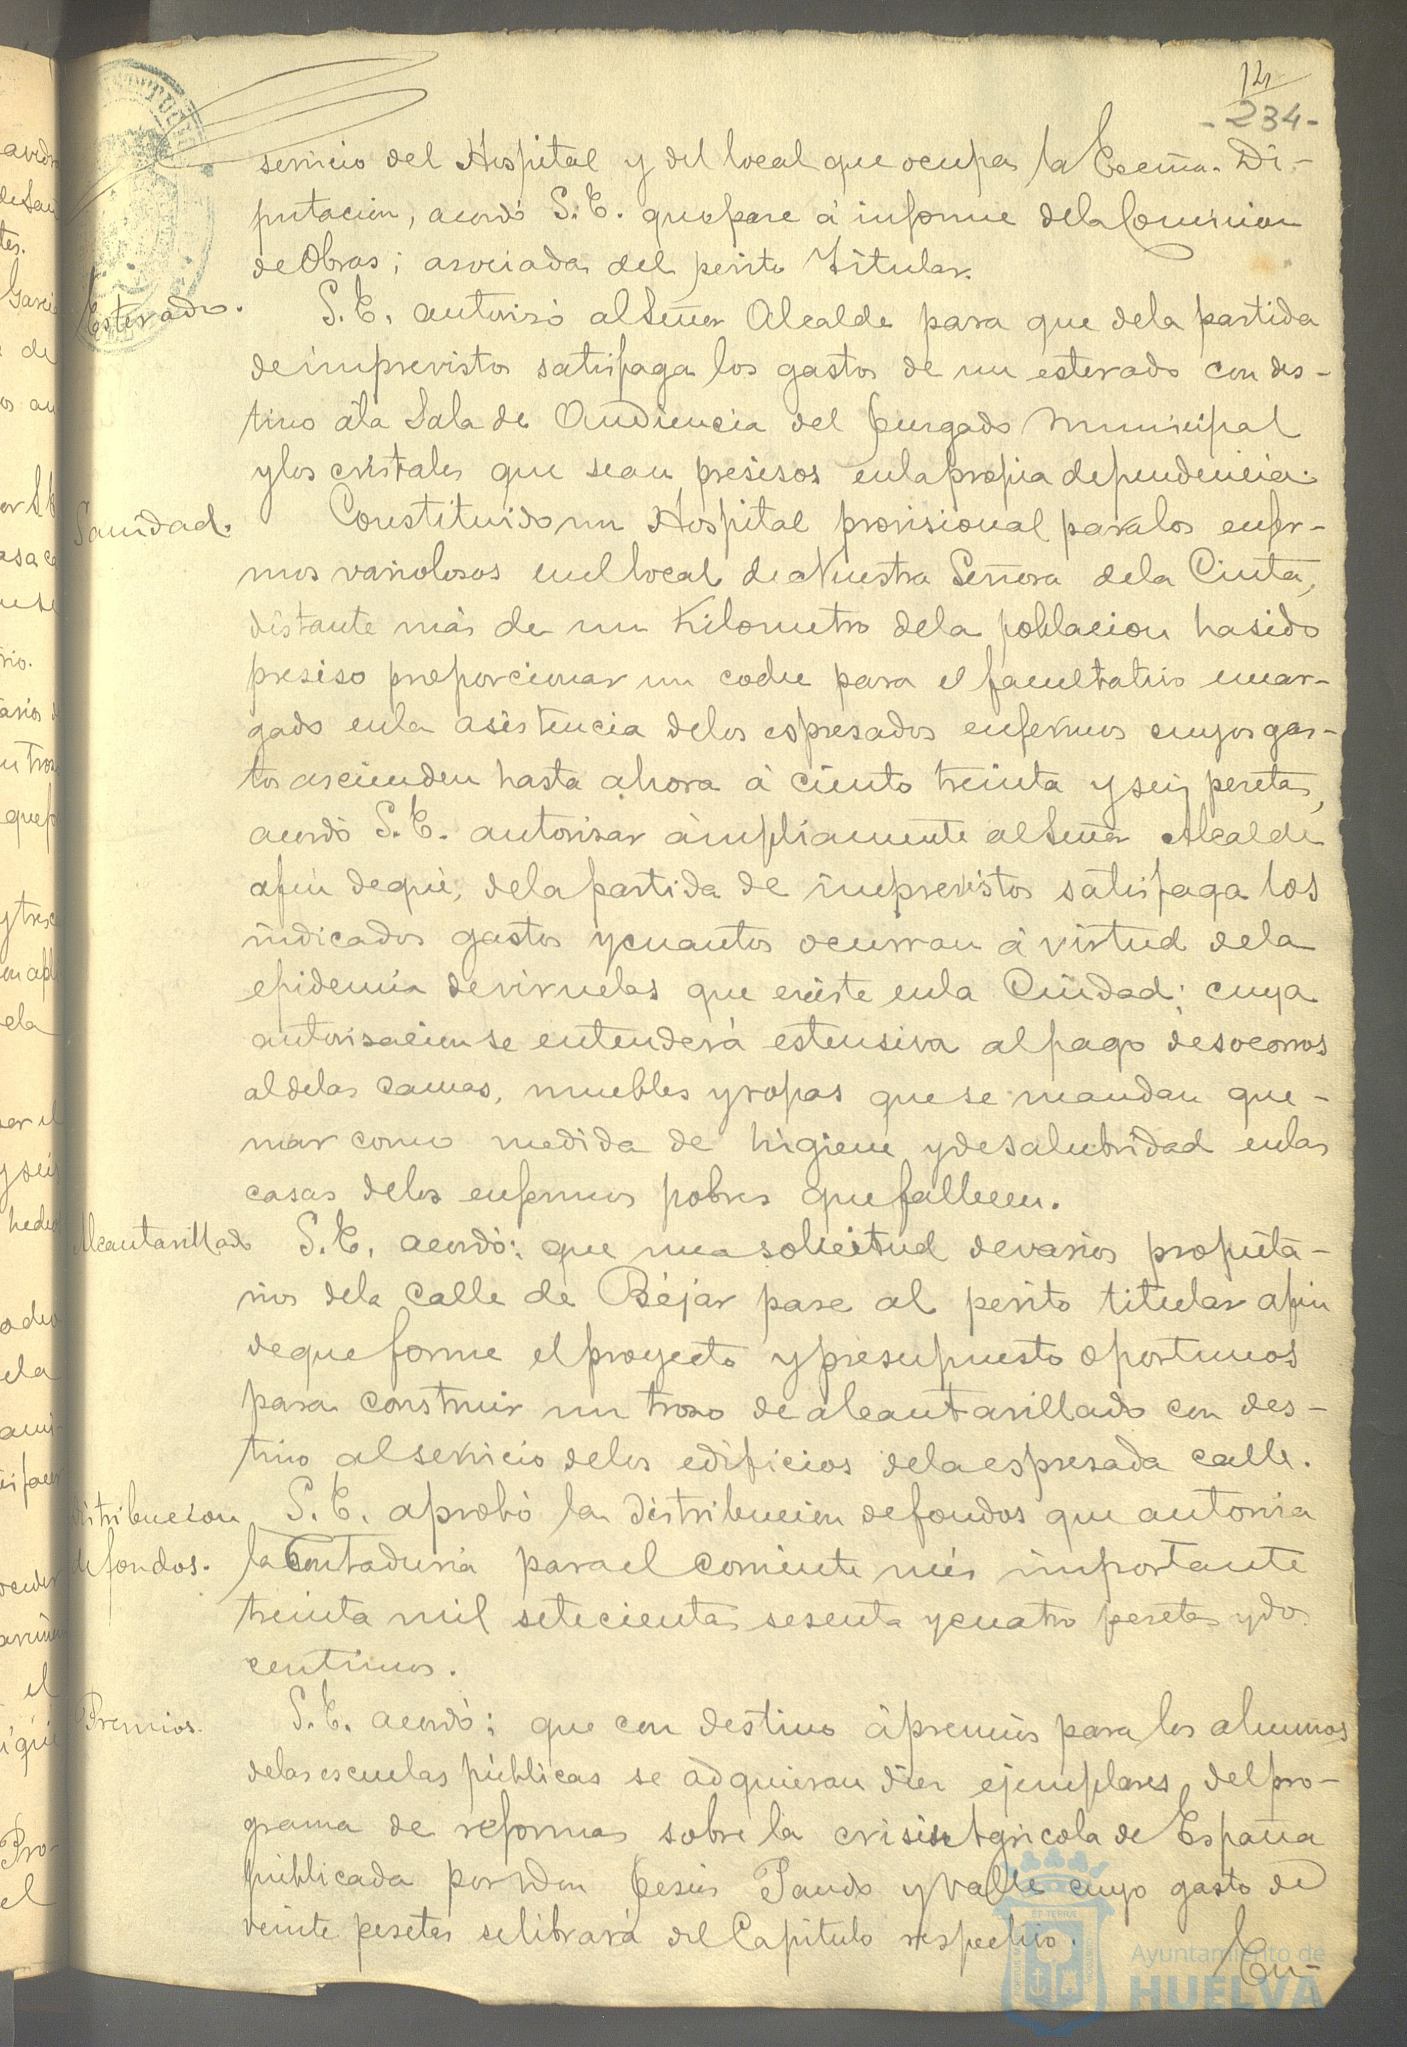 14
-234-
servicio del Hospital y del local que ocupa la Excma. Di-
putacion, acordó S.E. que pase á informe de la Comision
de Obras; asociada del perito Titular.
Esterado. S.E. autorisó al Señor Alcalde para que de la partida
de imprevistos satisfaga los gastos de un esterado con des-
tino á la Sala de Audiencia del Jurgado Municipal
y los cristales que sean presisos en la propia dependencia.
Sanidad. Constituido un Hospital provisional para los enfer-
mos variolosos en el local de Nuestra Señora de la Cinta,
distante más de un Kilometro de la poblacion ha sido
presiso proporcionar un coche para el facultativo encar-
gado en la asistencia de los espresados enfermos cuyos gas-
tos ascienden hasta ahora á ciento treinta y seis pesetas,
acordó S.E. autorisar ámpliamente al Señor Alcalde
afin de que, de la partida de imprevistos satisfaga los
indicados gastos y cuantos ocurran á virtud de la
epidemia de viruelas que existe en la Ciudad; cuya
autorisacion se entenderá estensiva al pago de socorros
al de las camas, muebles y ropas que se mandan que-
mar como medida de higiene y de salubridad en las
casas de los enfermos pobres que fallecen.
Alcantarillado S.E. acordó; que una solicitud de varios propieta-
rios de la calle de Béjar pase al perito titular afin
de que forme el proyecto y presupuesto oportunos
para construir un troso de alcantarillado con des-
tino al servicio de los edificios de la espresada calle.
Distribucion S.E. aprobó la distribucion de fondos que autoriza
de fondos. la Contaduria para el corriente més importante
treinta mil setecientas sesenta y cuatro pesetas y dos
centimos.
Premios. S.E. acordó; que con destino á premios para los alumnos
de las escuelas públicas se adquieran dier ejemplares del pro-
grama de reformas sobre la crisis Agricola de España
publicada por Don Jesús Pando y Valle cuyo gasto de
veinte pesetas se librará del Capitulo respectivo.
En-
Ayuntamiento de
HUELVA